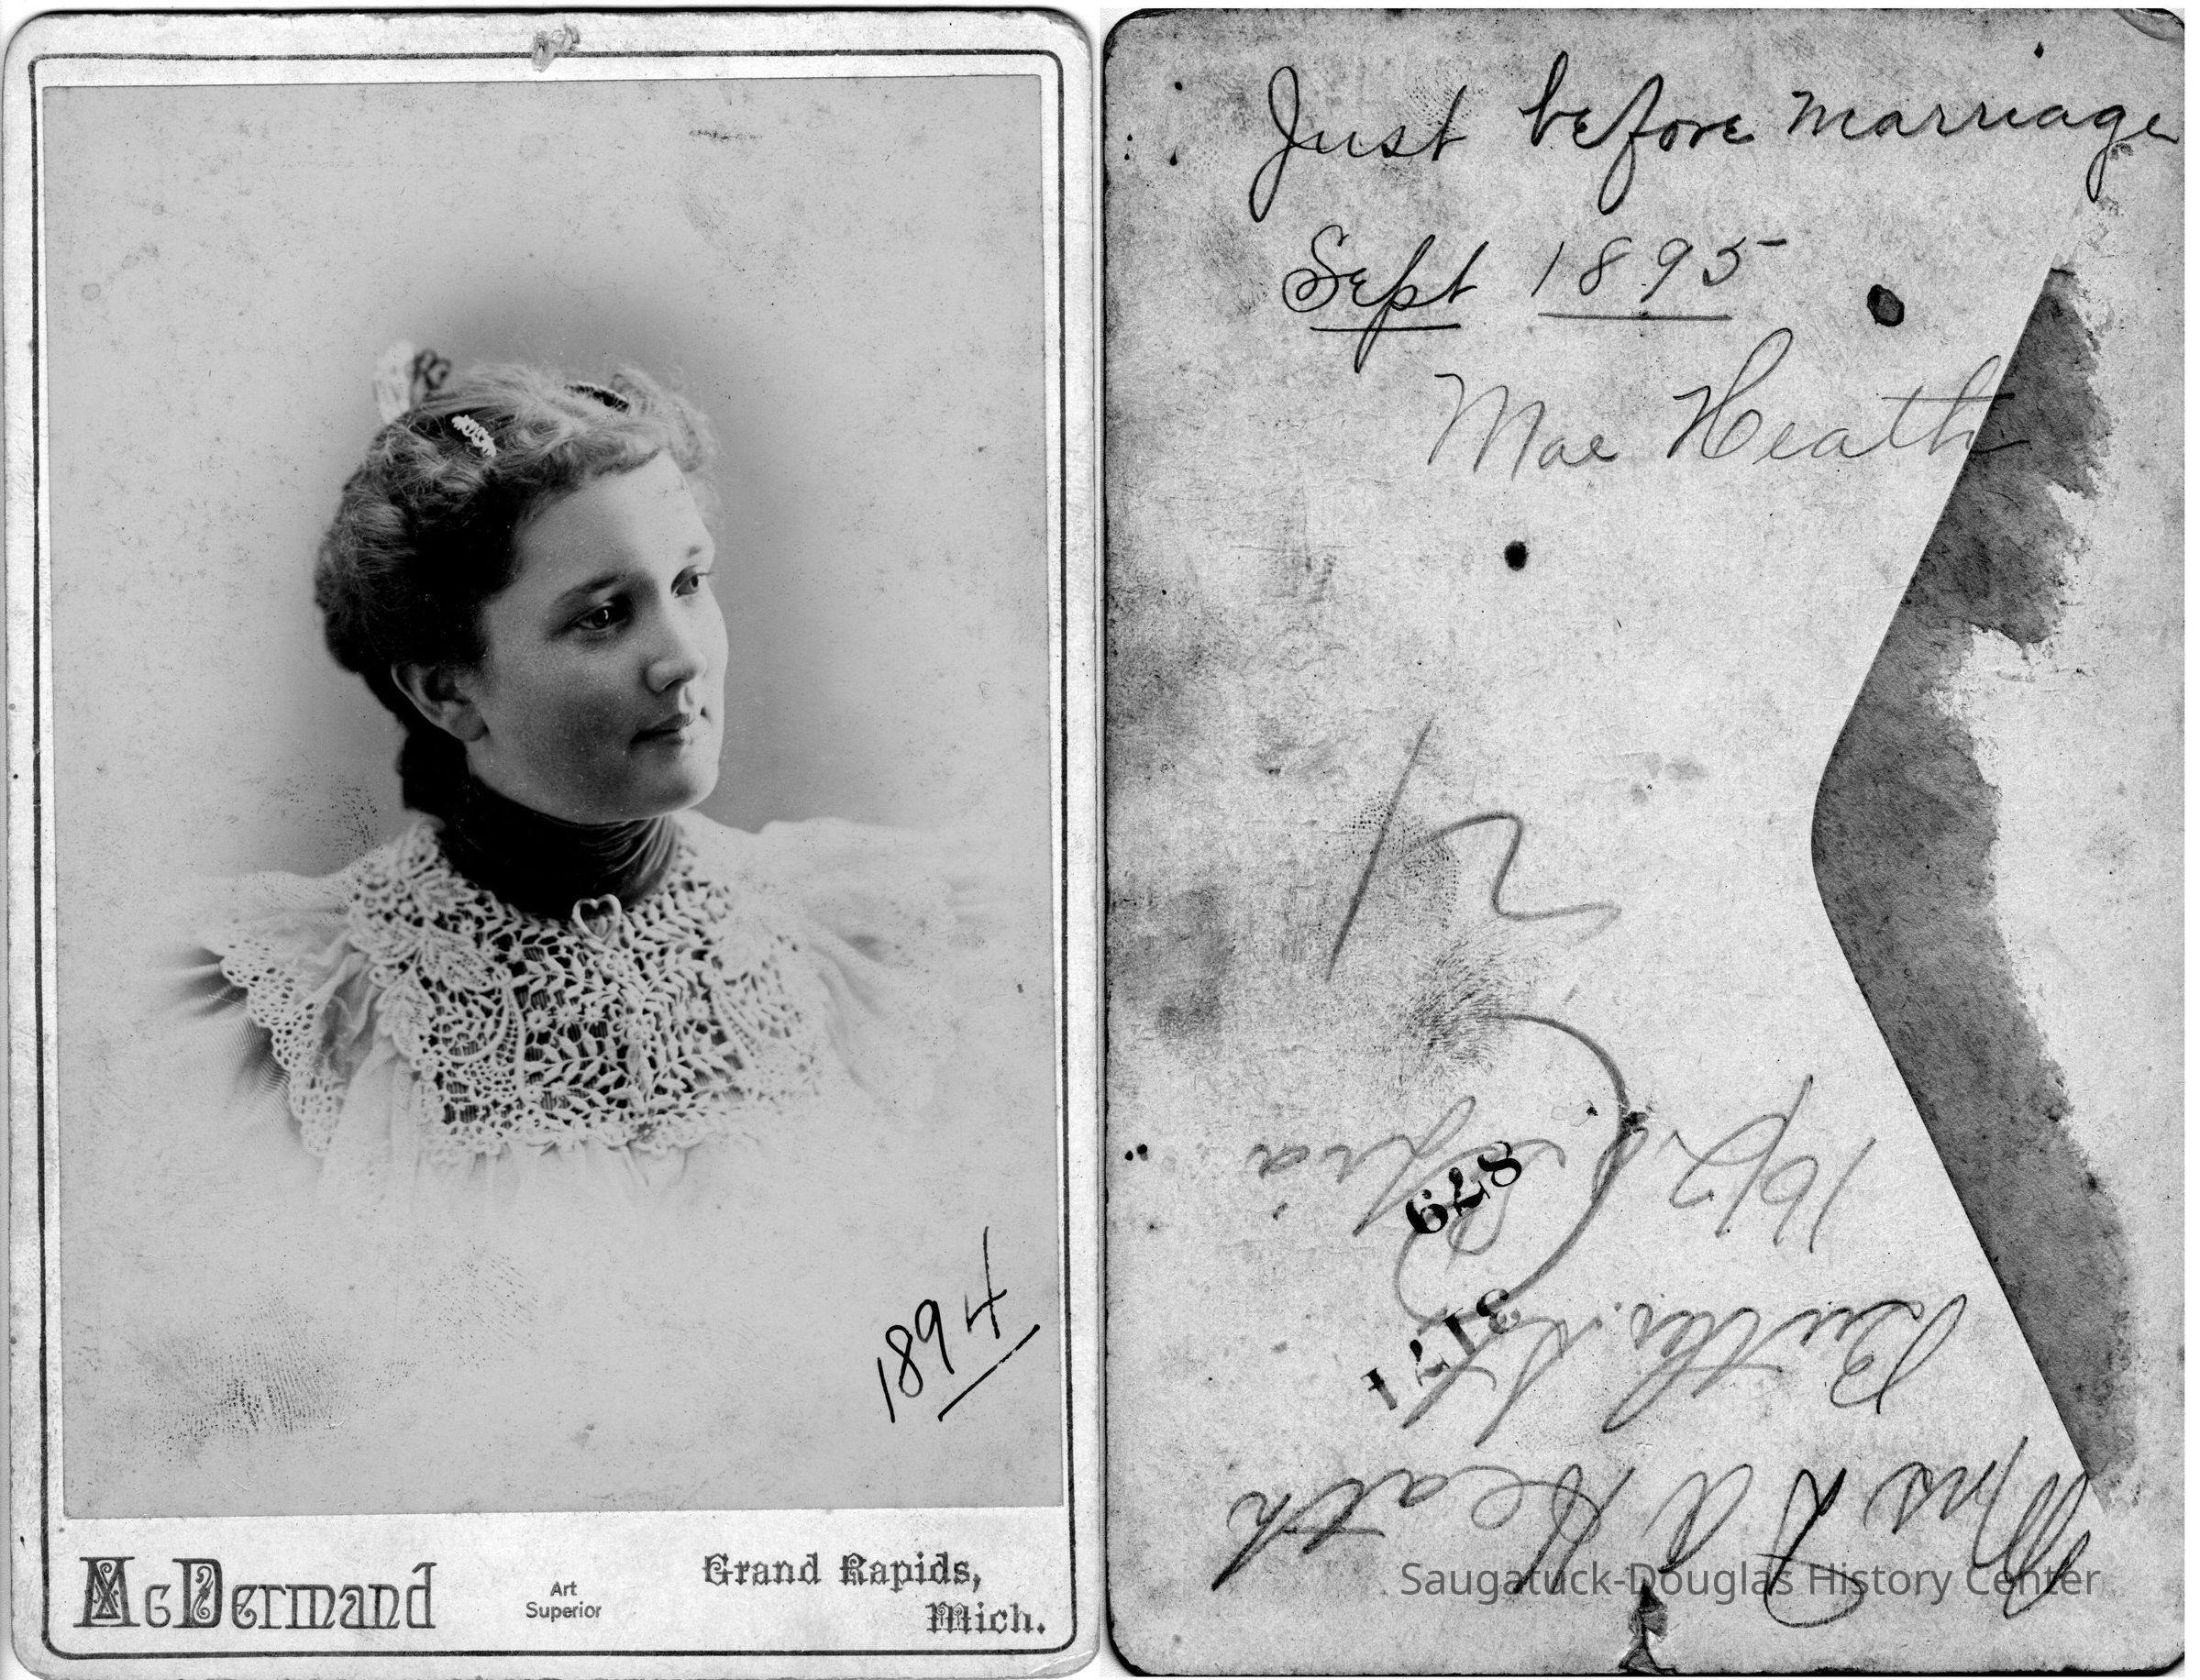 1894
McDermand
Art
Superior
Grand Rapids,
Mich.
Just before marriage
Sept 1895
Mae Heath
Mrs D A Heath
3171
879
Sepia
Saugatuck-Douglas History Center